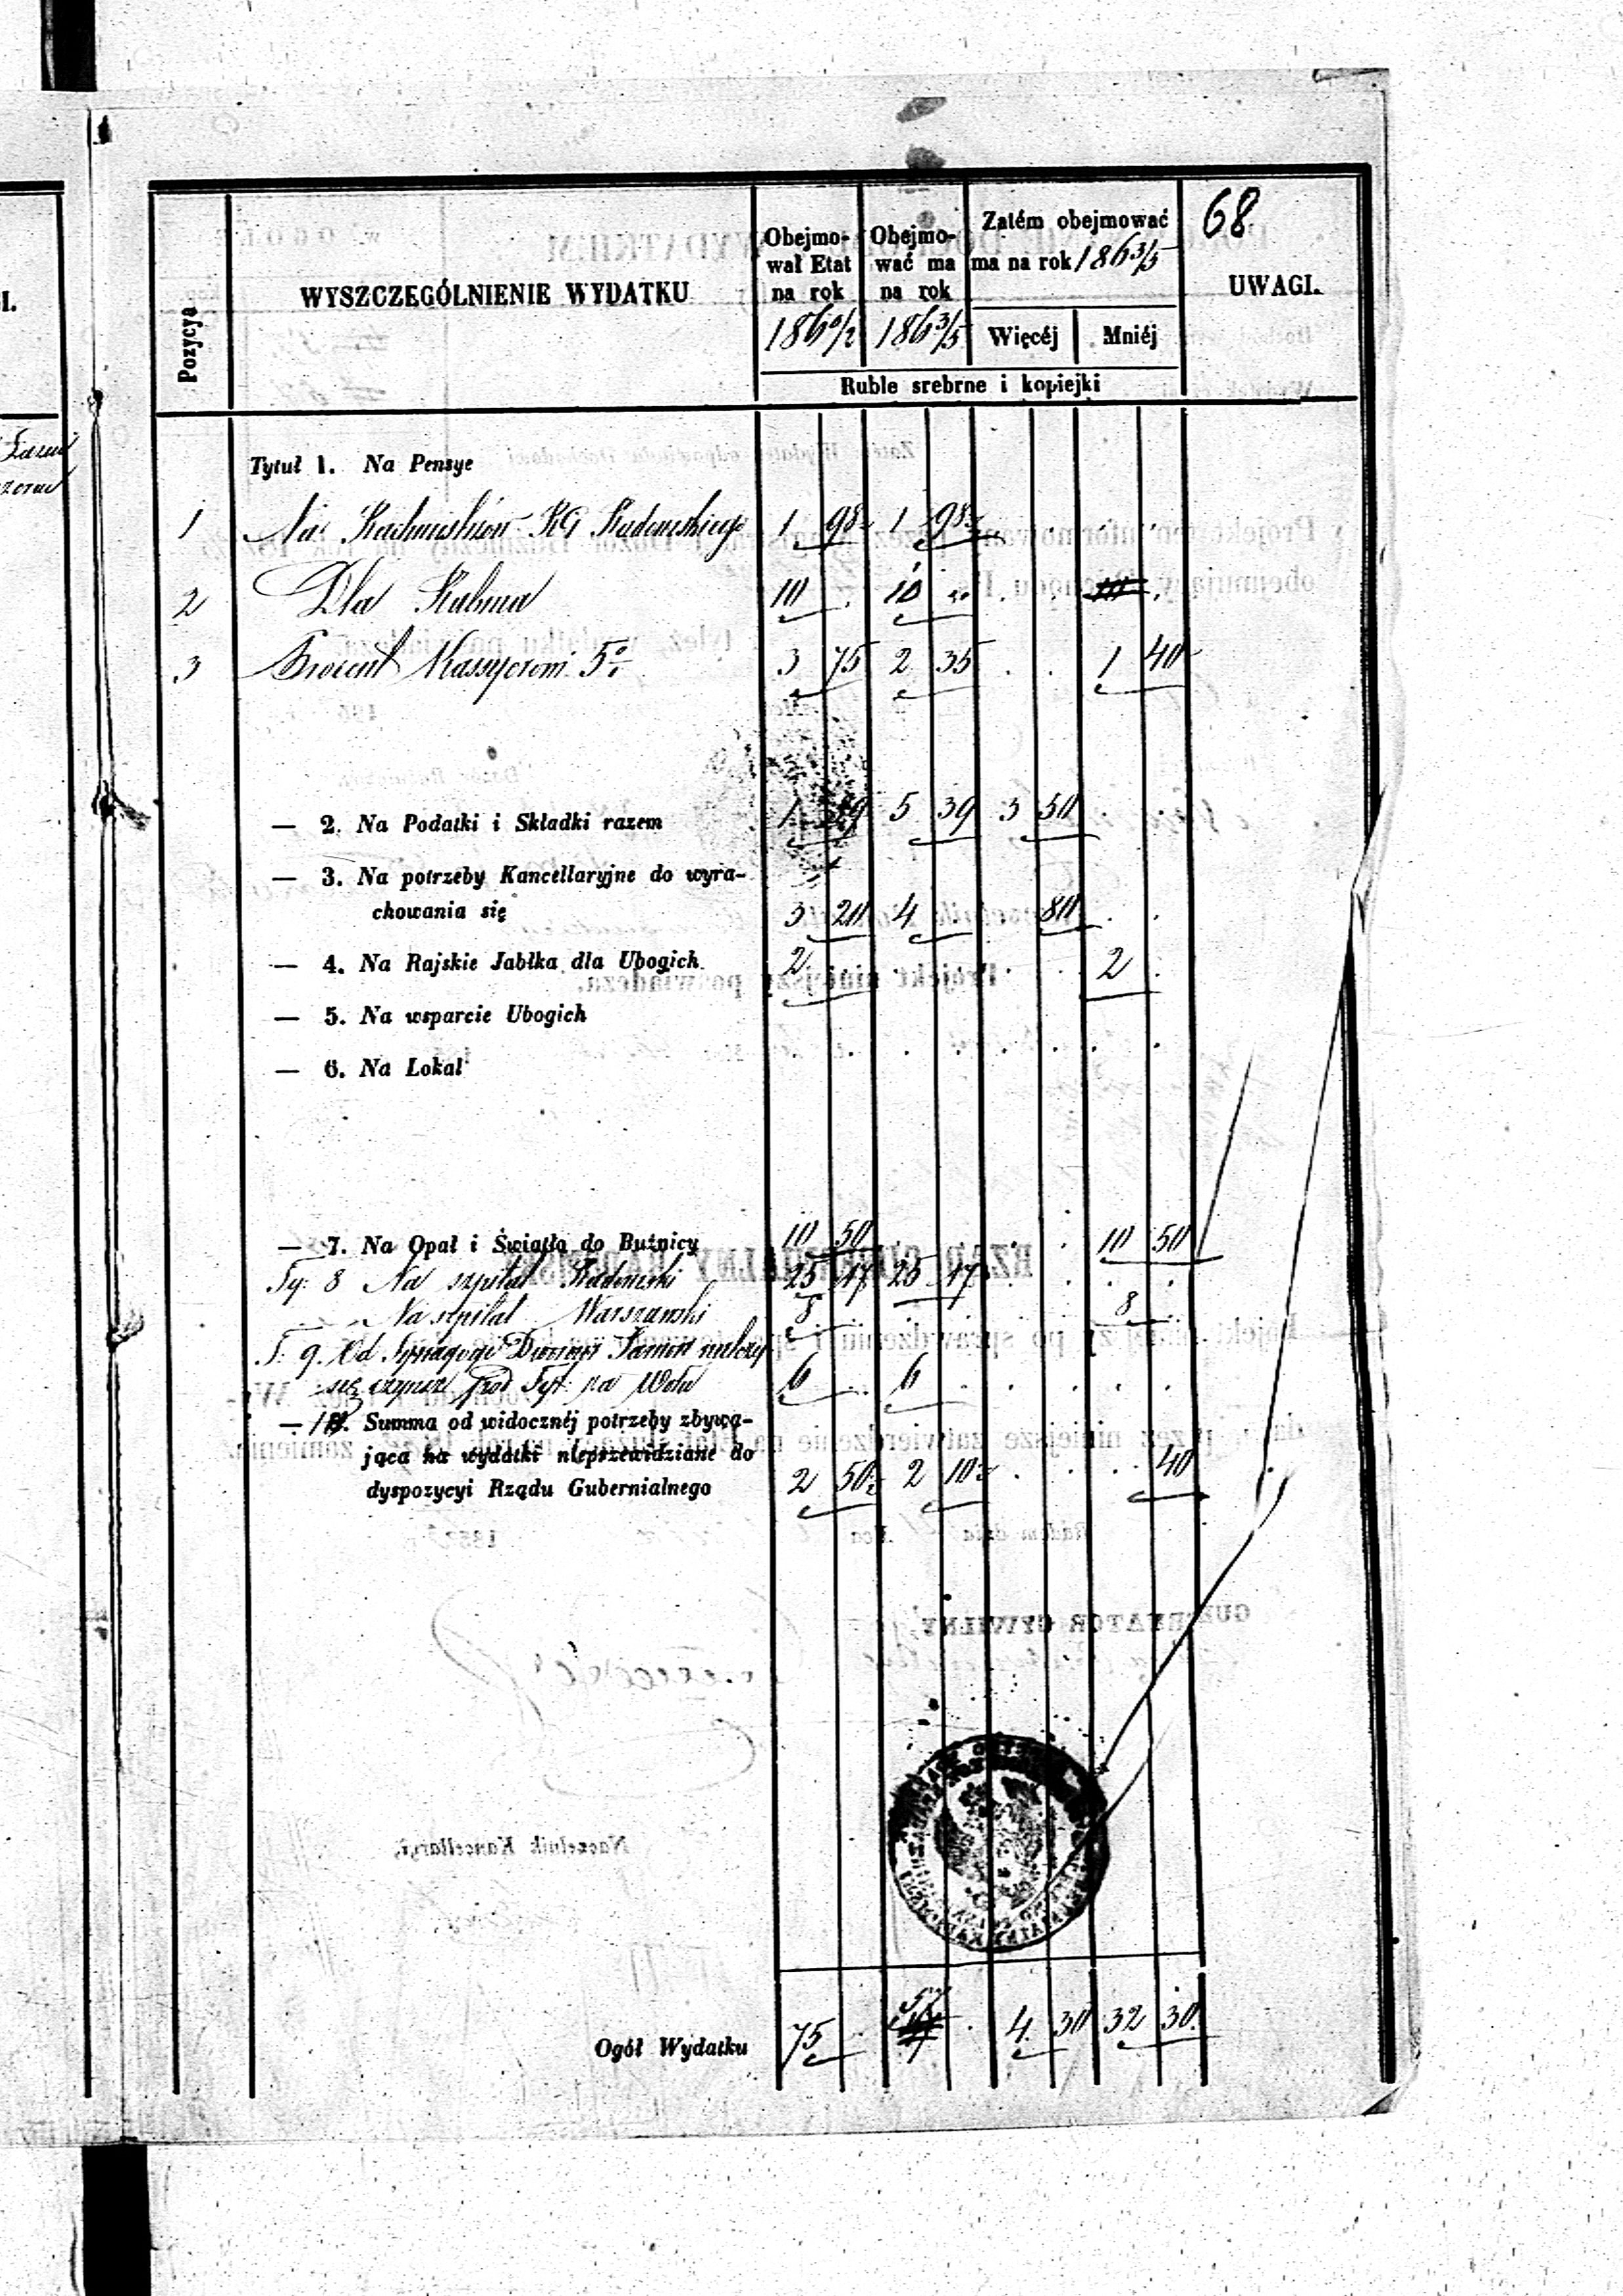 68
Pozycya
WYSZCZEGÓLNIENIE WYDATKU
Obejmo-
wał Etat
na rok
1860/2
Obejmo-
wać ma
na rok
1863/5
Zatém obejmować
ma na rok 1863/5
Więcéj Mniéj
UWAGI.
Ruble srebrne i kopiejki
Tytuł 1. Na Pensye
1 Na RG Radomskiego 1 98 1 98 . . . .
2 Dla Rabina 10 . 10 . . .
3 Procent Kassyerowi 5% 3 75 2 35 . . 1 40
— 2. Na Podatki i Składki razem 1 89 5 39 3 50 . .
— 3. Na potrzeby Kancellaryjne do wyra-
chowania się 3 20 4 . . 80 . .
— 4. Na Rajskie Jabłka dla Ubogich 2 . . . . . 2 .
— 5. Na wsparcie Ubogich
— 6. Na Lokal
— 7. Na Opał i Światło do Bużnicy 10 50 . . . . 10 50
Ty: 8 Na szpital Radomski 25 17 25 17 . . . .
Na szpital Warszawski 8 . . . . . 8 .
T. 9. Od Synagogi
czynsz 6 . 6 . . . . .
— 10. Summa od widocznéj potrzeby zbywa-
jąca na wydatki nieprzewidziane do
dyspozycyi Rządu Gubernialnego 2 50 2 10 . . . 40
Ogół Wydatku 75 . 57 . 4 30 32 30